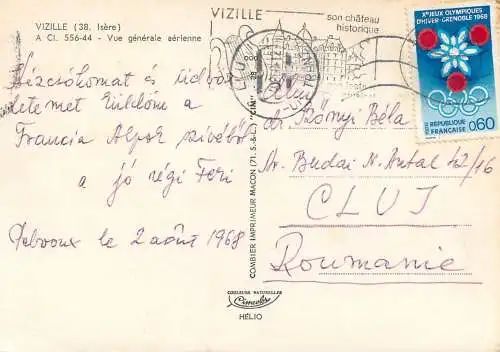 VIZILLE (38. Isère)
A Cl. 556-44 - Vue générale aérienne
Kézcsókomat és üdvöz
letemet küldöm a
Francia Alpok szívéből
a jó régi Feri
le 2 août 1968
VIZILLE
son château
historique
Xes JEUX OLYMPIQUES
D'HIVER-GRENOBLE 1968
RÉPUBLIQUE
FRANÇAISE
0,60
COMBIER IMPRIMEUR MACON (71. S.-&-L.) "CIM"
dr. Szőnyi Béla
Str. Budai N. Antal 42/16
CLUJ
Roumanie
COULEURS NATURELLES
Cimcolor
HÉLIO